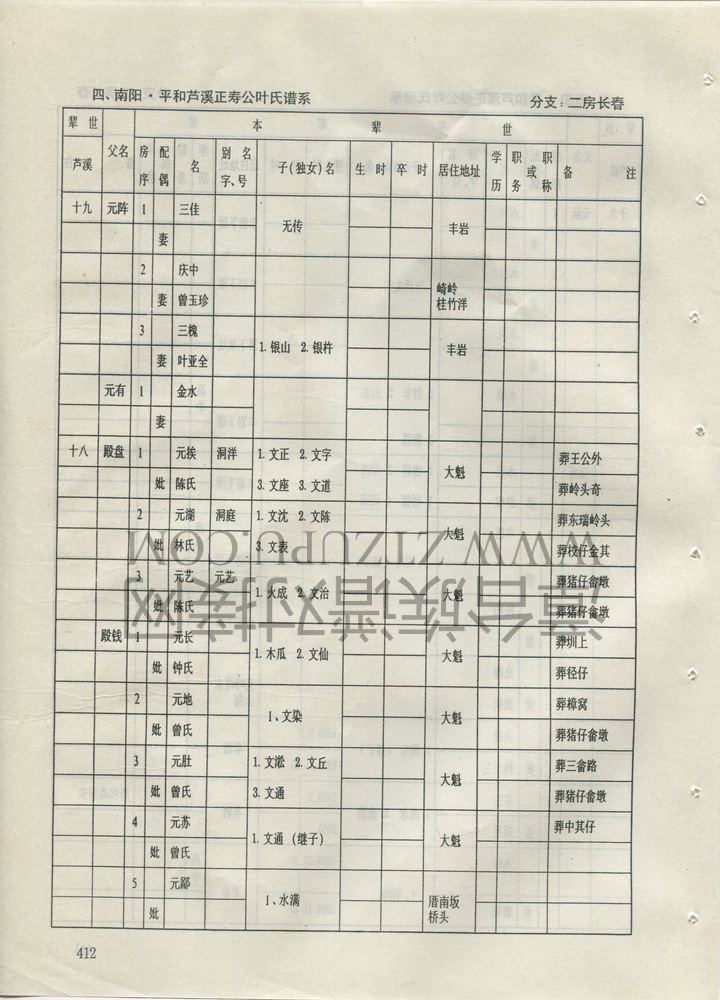 四、南阳·平和芦溪正寿公叶氏谱系 分支：二房长春
辈世 本 辈 世
芦溪 父名 房序 配偶 名 别名字、号 子(独女)名 生时 卒时 居住地址 学历 职务或职称 备注
十九 元阵 1 三佳 无传 丰岩
妻
2 庆中 崎岭桂竹洋
妻 曾玉珍
3 三槐 1.银山 2.银杵 丰岩
妻 叶亚全
元有 1 金水
妻
十八 殿盘 1 元挨 洞洋 1.文正 2.文字 大魁 葬王公外
妣 陈氏 3.文座 3.文道 葬岭头奇
2 元湖 洞庭 1.文沈 2.文陈 大魁 葬东瑞岭头
妣 林氏 3.文表 葬校仔金其
3 元艺 元艺 1.火成 2.文治 大魁 葬猪仔畲墩
妣 陈氏 葬猪仔畲墩
殿钱 1 元长 1.木瓜 2.文仙 大魁 葬圳上
妣 钟氏 葬径仔
2 元地 1、文染 大魁 葬樟窝
妣 曾氏 葬猪仔畲墩
3 元肚 1.文淞 2.文丘 大魁 葬三畲路
妣 曾氏 3.文通 葬猪仔畲墩
4 元苏 1.文通（继子） 大魁 葬中其仔
妣 曾氏
5 元鄙 1、水满 厝南坂桥头
妣
412
WWW.ZTZUPU.COM
漳台族谱对接网